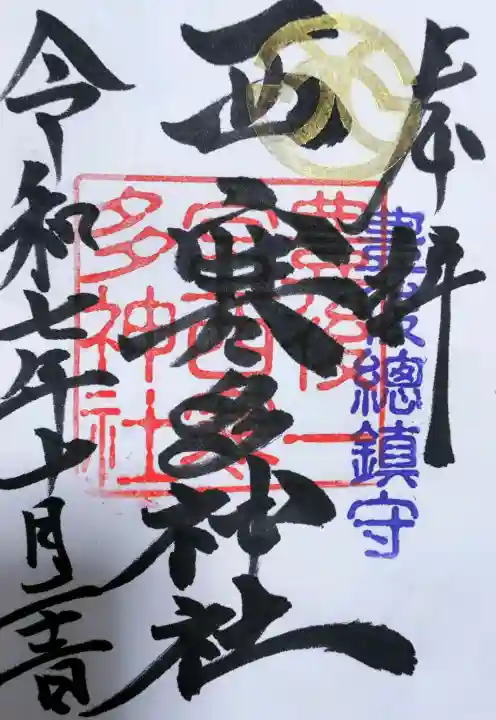 奉拝
豊後總鎮守
豊後一宮西寒多神社
西寒多神社
令和七年十月二十三日